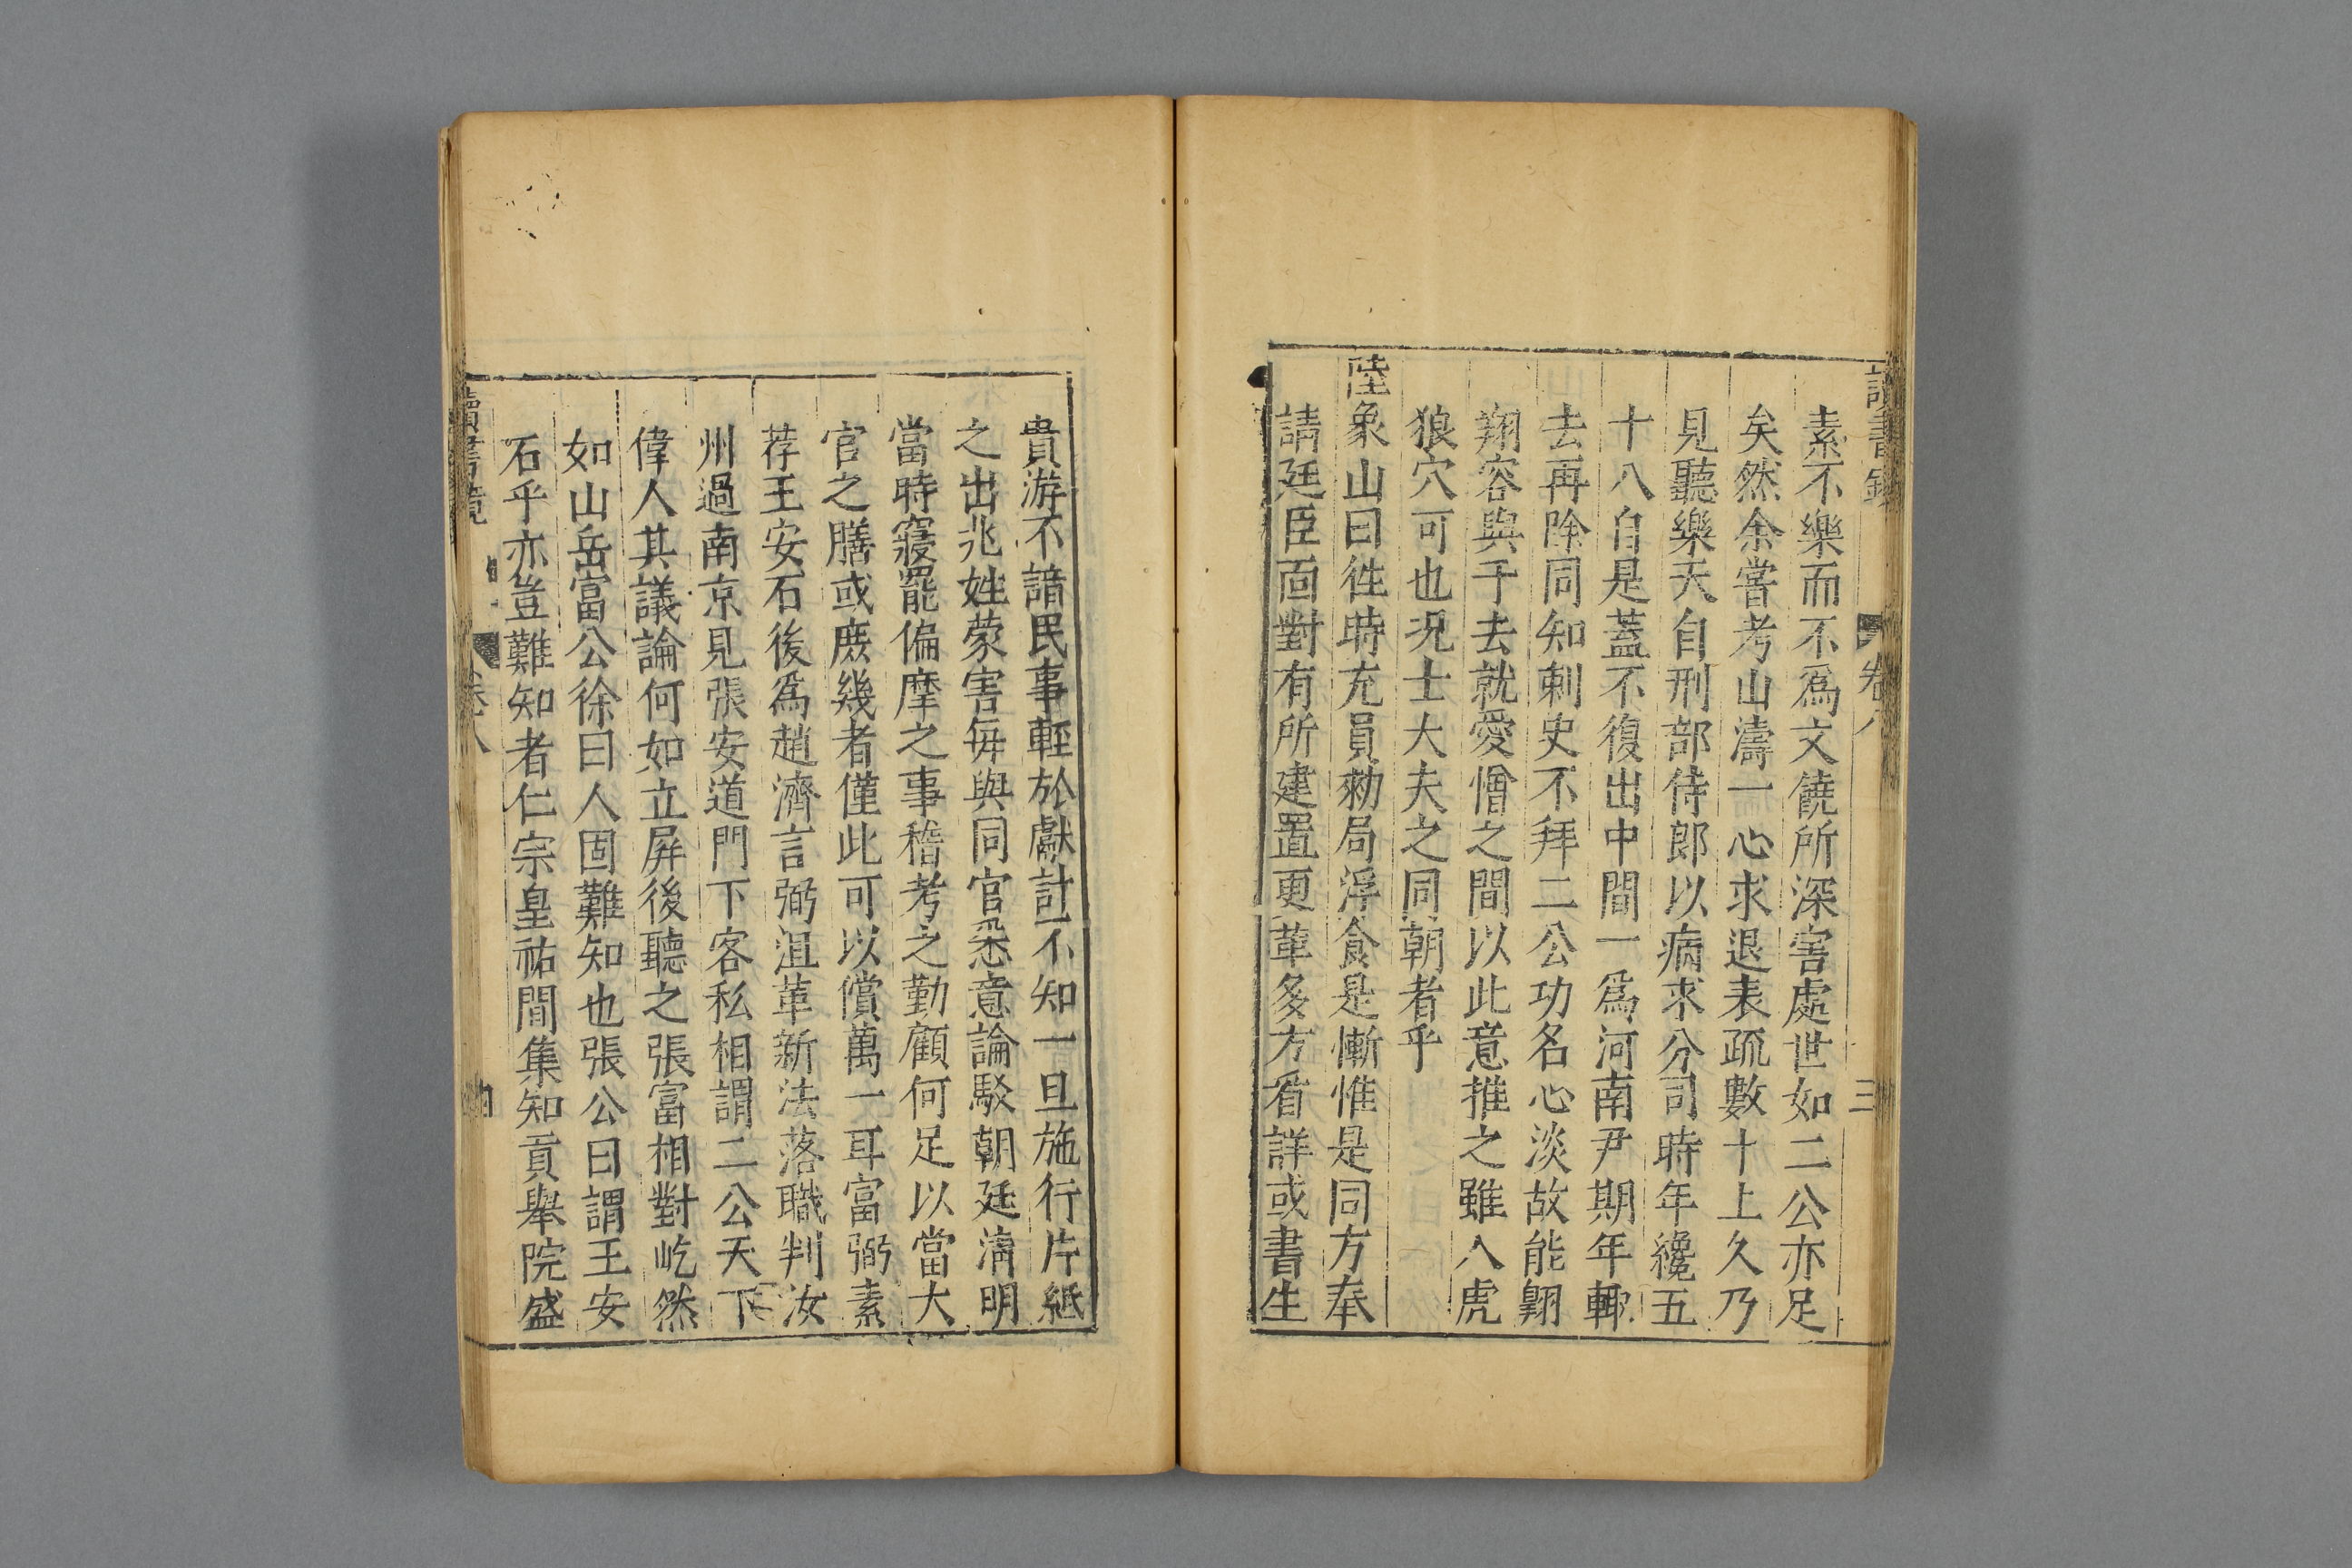 讀書鏡 卷八 三
素不樂而不爲文饒所深害處世如二公亦足
矣然余嘗考山濤一心求退表疏數十上久乃
見聽樂天自刑部侍郎以病求分司時年纔五
十八自是蓋不復出中間一爲河南尹期年輙
去再除同知刺史不拜二公功名心淡故能翺
翔容與于去就愛憎之間以此意推之雖入虎
狼穴可也况士大夫之同朝者乎
陸象山曰徃時充員勑局浮食是慚惟是同方奉
請廷臣面對有所建置更革多方看詳或書生
貴游不諳民事輕於獻計不知一旦施行片紙
之出兆姓蒙害每與同官悉意論駁朝廷淸明
當時寢罷偏摩之事稽考之勤顧何足以當大
官之膳或庶幾者僅此可以償萬一耳富弼素
荐王安石後爲趙濟言弼沮革新法落職判汝
州過南京見張安道門下客私相謂二公天下
偉人其議論何如立屏後聽之張富相對屹然
如山岳富公徐曰人固難知也張公曰謂王安
石乎亦豈難知者仁宗皇祐間集知貢舉院盛
讀書鏡 卷八